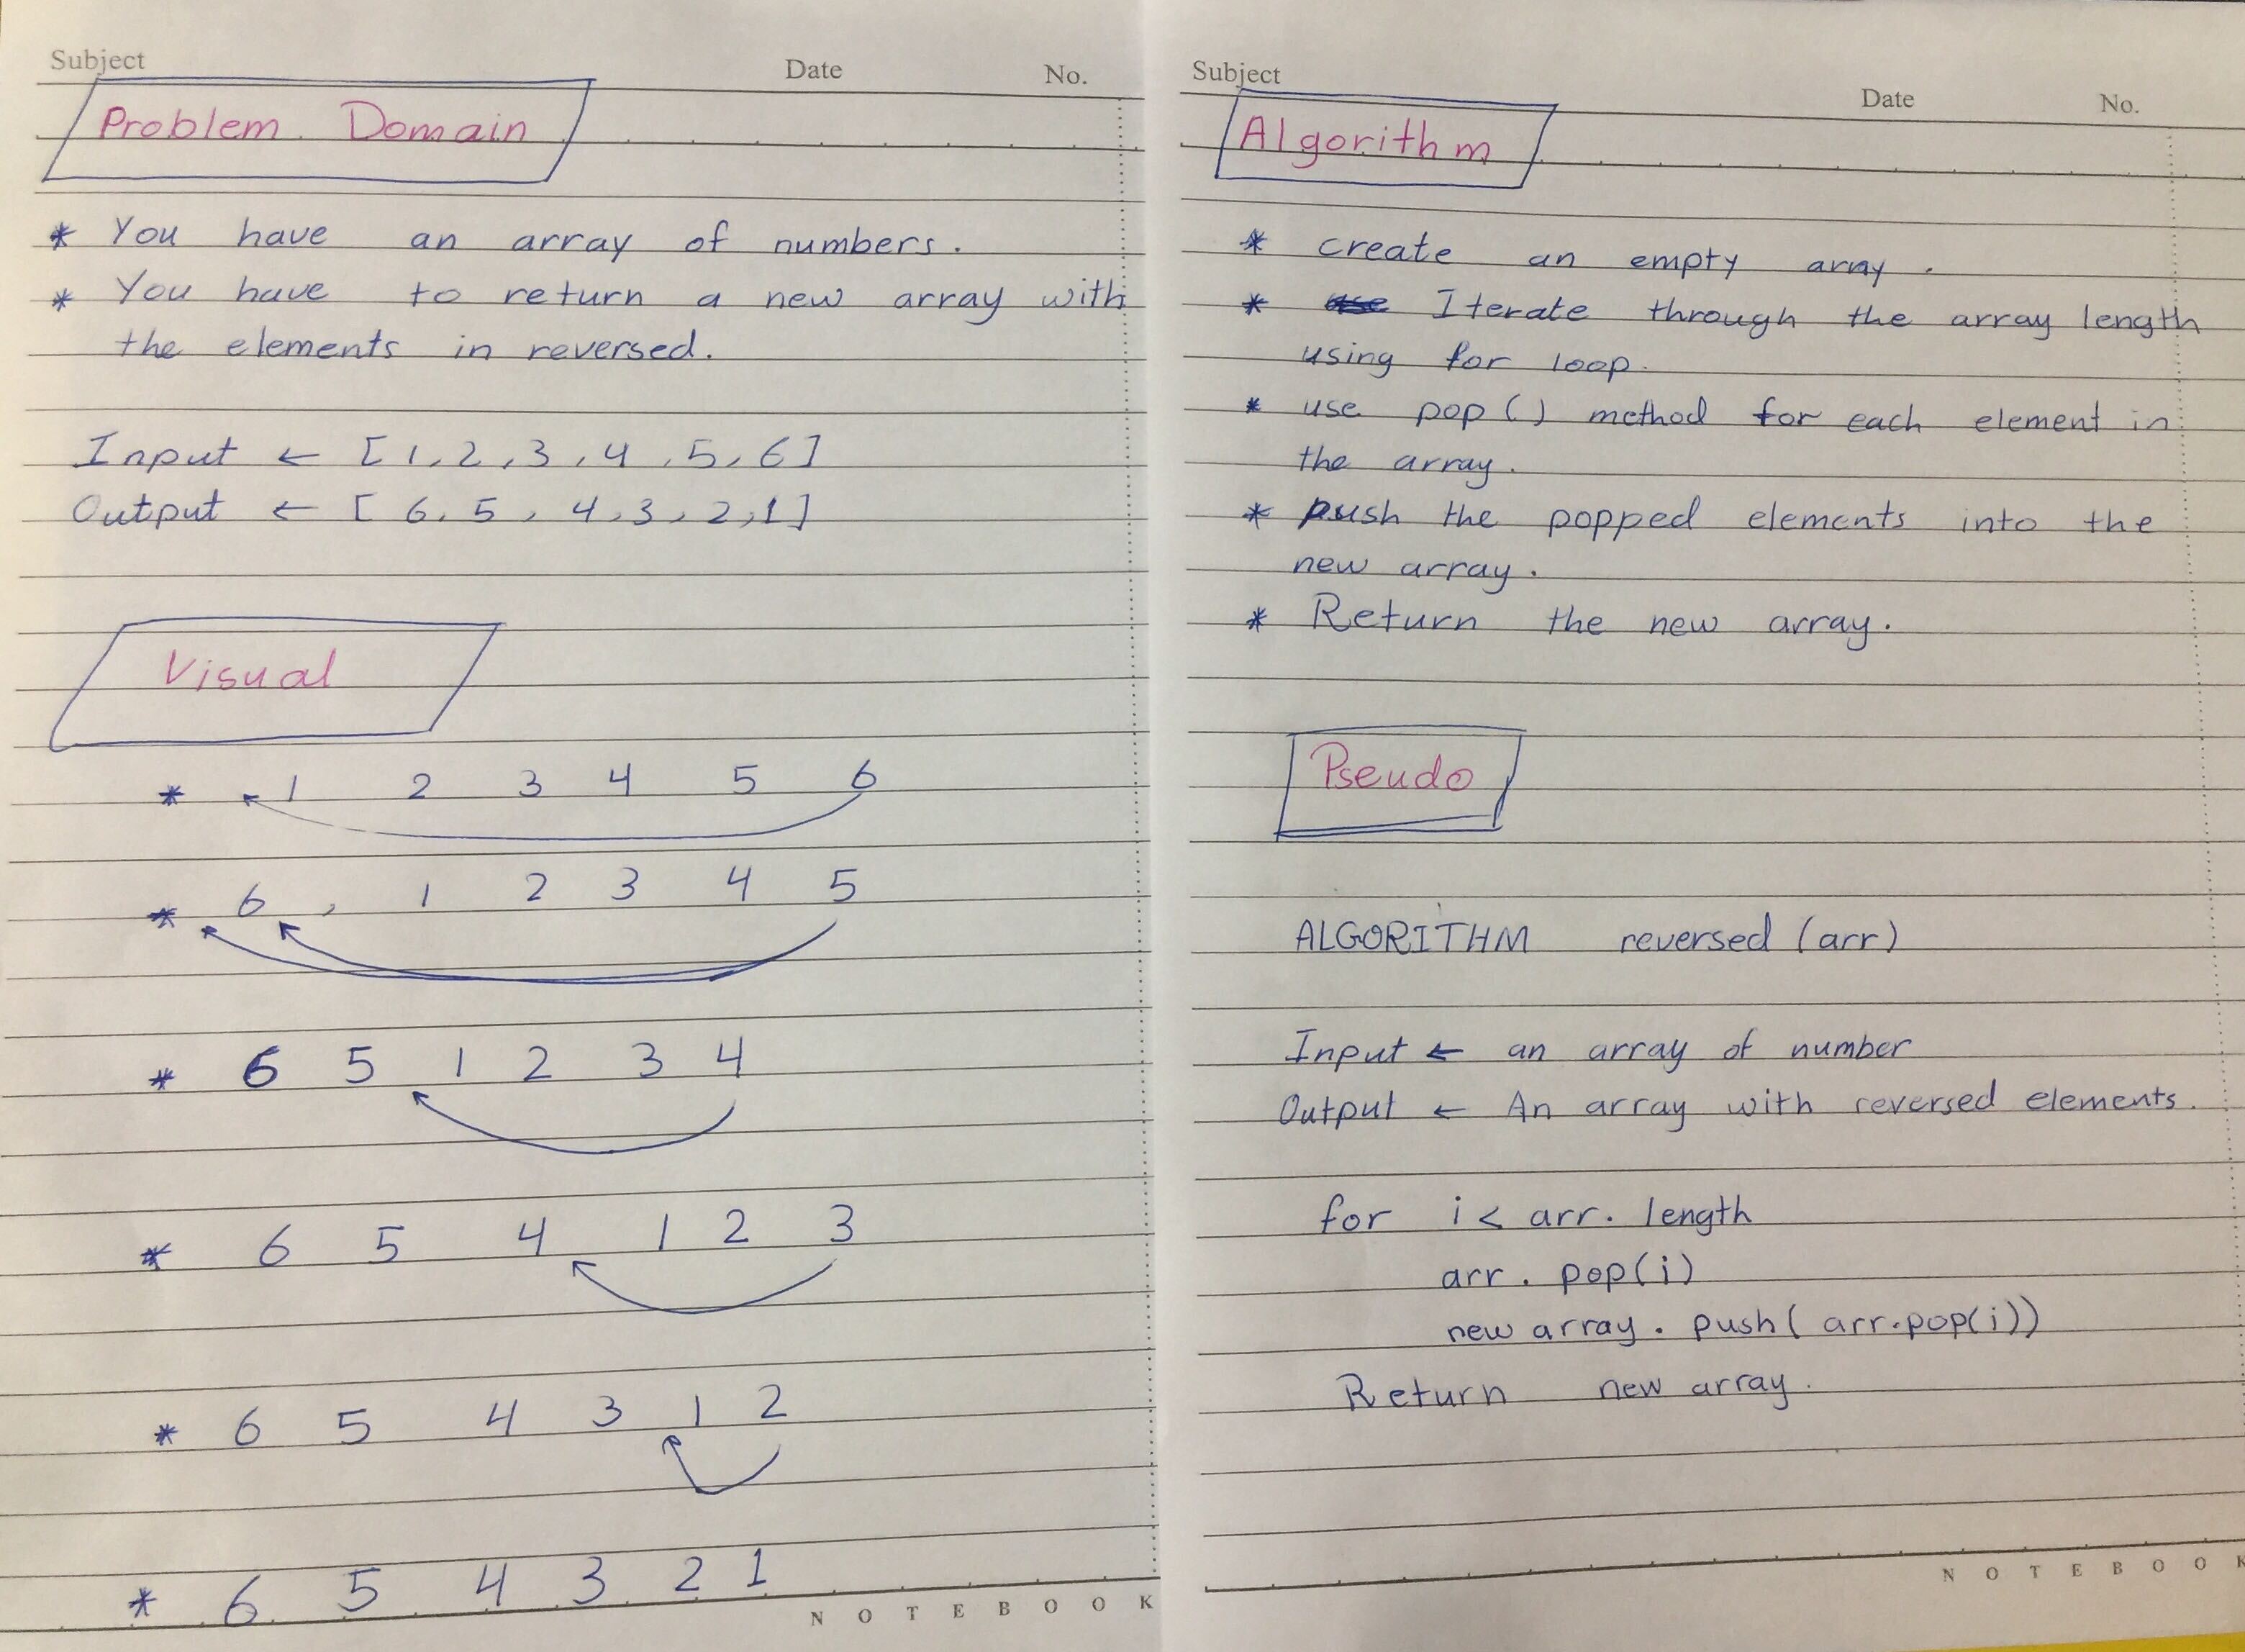 Subject Date No.
Problem Domain
* You have an array of numbers.
* You have to return a new array with
the elements in reversed.
Input ← [1,2,3,4,5,6]
Output ← [6,5,4,3,2,1]
Visual
* 1 2 3 4 5 6
* 6, 1 2 3 4 5
* 6 5 1 2 3 4
* 6 5 4 1 2 3
* 6 5 4 3 1 2
* 6 5 4 3 2 1
NOTEBOOK
Subject Date No.
Algorithm
* create an empty array.
* Iterate through the array length
using for loop.
* use pop() method for each element in
the array.
* push the popped elements into the
new array.
* Return the new array.
Pseudo
ALGORITHM reversed (arr)
Input ← an array of number
Output ← An array with reversed elements.
for i < arr. length
arr. pop(i)
new array. push( arr.pop(i))
Return new array.
NOTEBOOK